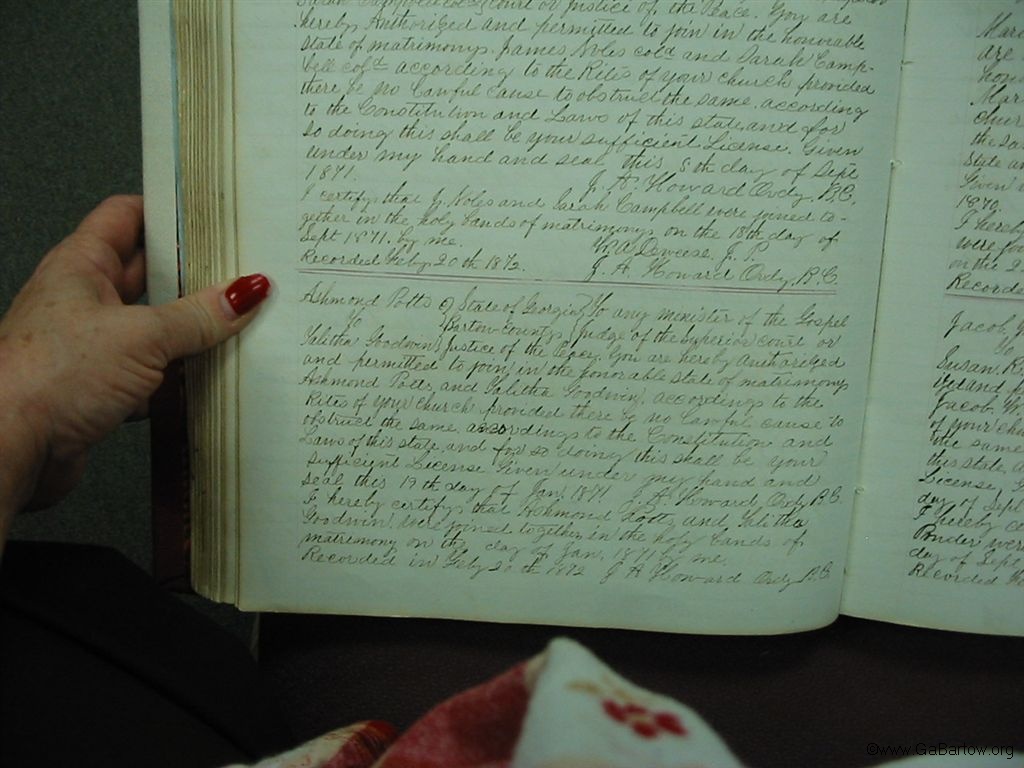 Sarah Campbell cold Court or Justice of the Peace. You are
hereby Authorized and permitted to join in the honorable
state of matrimony. James Noles cold and Sarah Camp-
bell cold according to the Rites of your church provided
there be no Lawful cause to obstruct the same according
to the Constitution and Laws of this state, and for
so doing this shall be your sufficient License. Given
under my hand and seal this 8th day of Sept
1871. J. A. Howard Ordy, B.C.
I certify that J. Noles and Sarah Campbell were joined to-
gether in the holy bands of matrimony on the 18th day of
Sept 1871. by me. J. P.
Recorded Feby. 20th 1872. J. A. Howard Ordy, B.C.
Ashmond Potts State of Georgia To any minister of the Gospel
To Bartow County Judge of the Superior court or
Talitha Goodwin Justice of the Peace. You are hereby Authorized
and permitted to join in the honorable state of matrimony
Ashmond Potts, and Talitha Goodwin, according to the
Rites of your church provided there be no Lawful cause to
obstruct the same according to the Constitution and
Laws of this state, and for so doing this shall be your
sufficient License Given under my hand and
seal this 19th day of Jan. 1871 J. A. Howard, Ordy, B.C.
I hereby certify that Ashmond Potts and Talitha
Goodwin were joined together in the holy bands of
matrimony on the day of Jan. 1871 by me.
Recorded in Feby 20th 1872 J A Howard Ordy B.C.
Mar
are
hon
Mar
chur
the sa
state a
Given
1870.
I hereby
were joi
on the 2
Recorde
Jacob
To
Susan
Jacob W.
of your chu
the same
this state, a
License, G
day of Sept
I hereby ce
Ponder wer
day of Sept
Recorded
©www.GaBartow.org